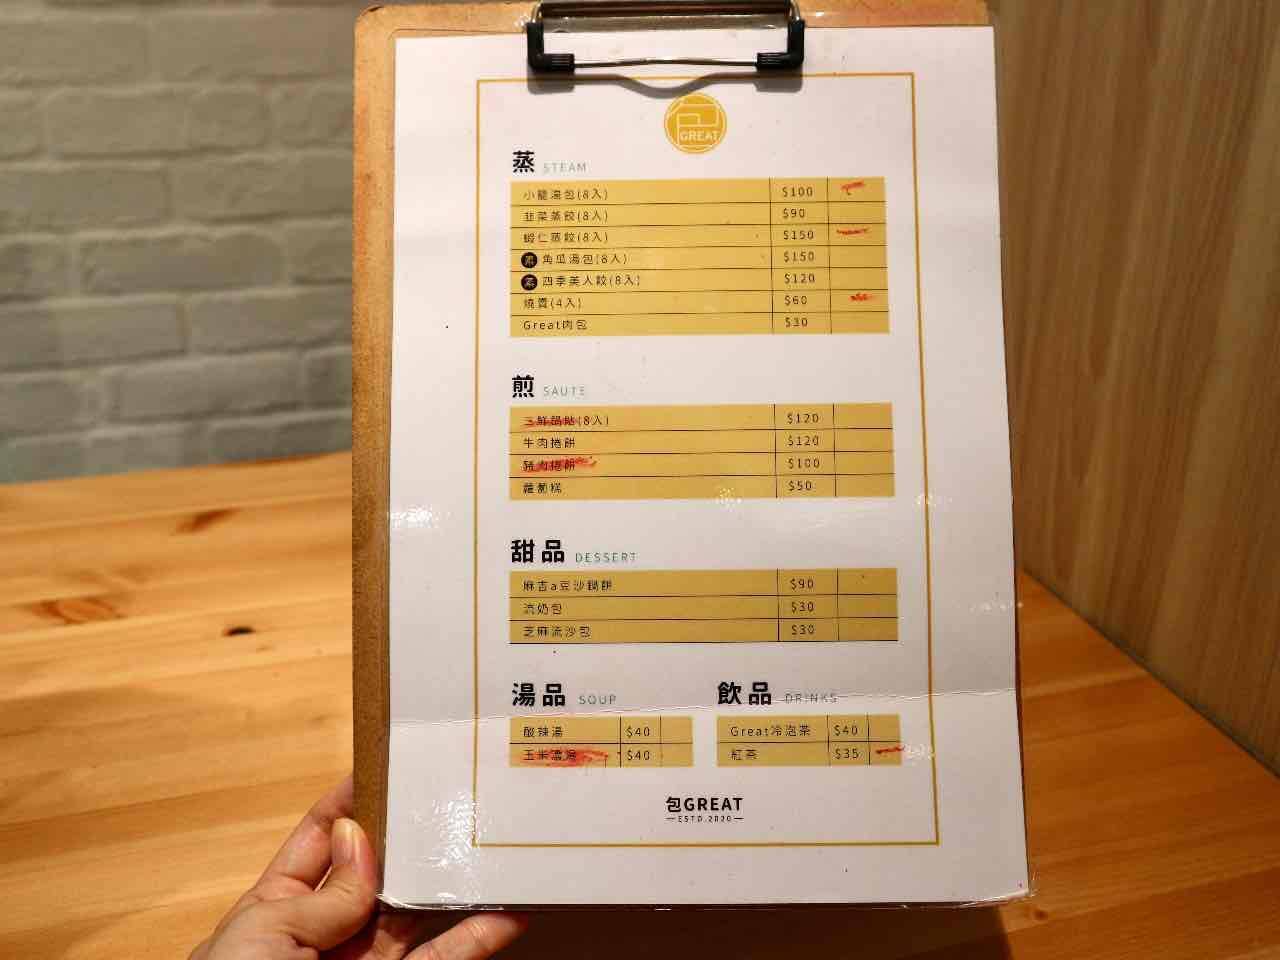 包
GREAT
蒸 STEAM
小籠湯包(8入) $100
韭菜蒸餃(8入) $90
蝦仁蒸餃(8入) $150
素 角瓜湯包(8入) $150
素 四季美人餃(8入) $120
燒賣(4入) $60
Great肉包 $30
煎 SAUTE
三鮮鍋貼(8入) $120
牛肉捲餅 $120
豬肉捲餅 $100
蘿蔔糕 $50
甜品 DESSERT
麻吉a豆沙鍋餅 $90
流奶包 $30
芝麻流沙包 $30
湯品 SOUP
酸辣湯 $40
玉米濃湯 $40
飲品 DRINKS
Great冷泡茶 $40
紅茶 $35
包GREAT
ESTD.2020